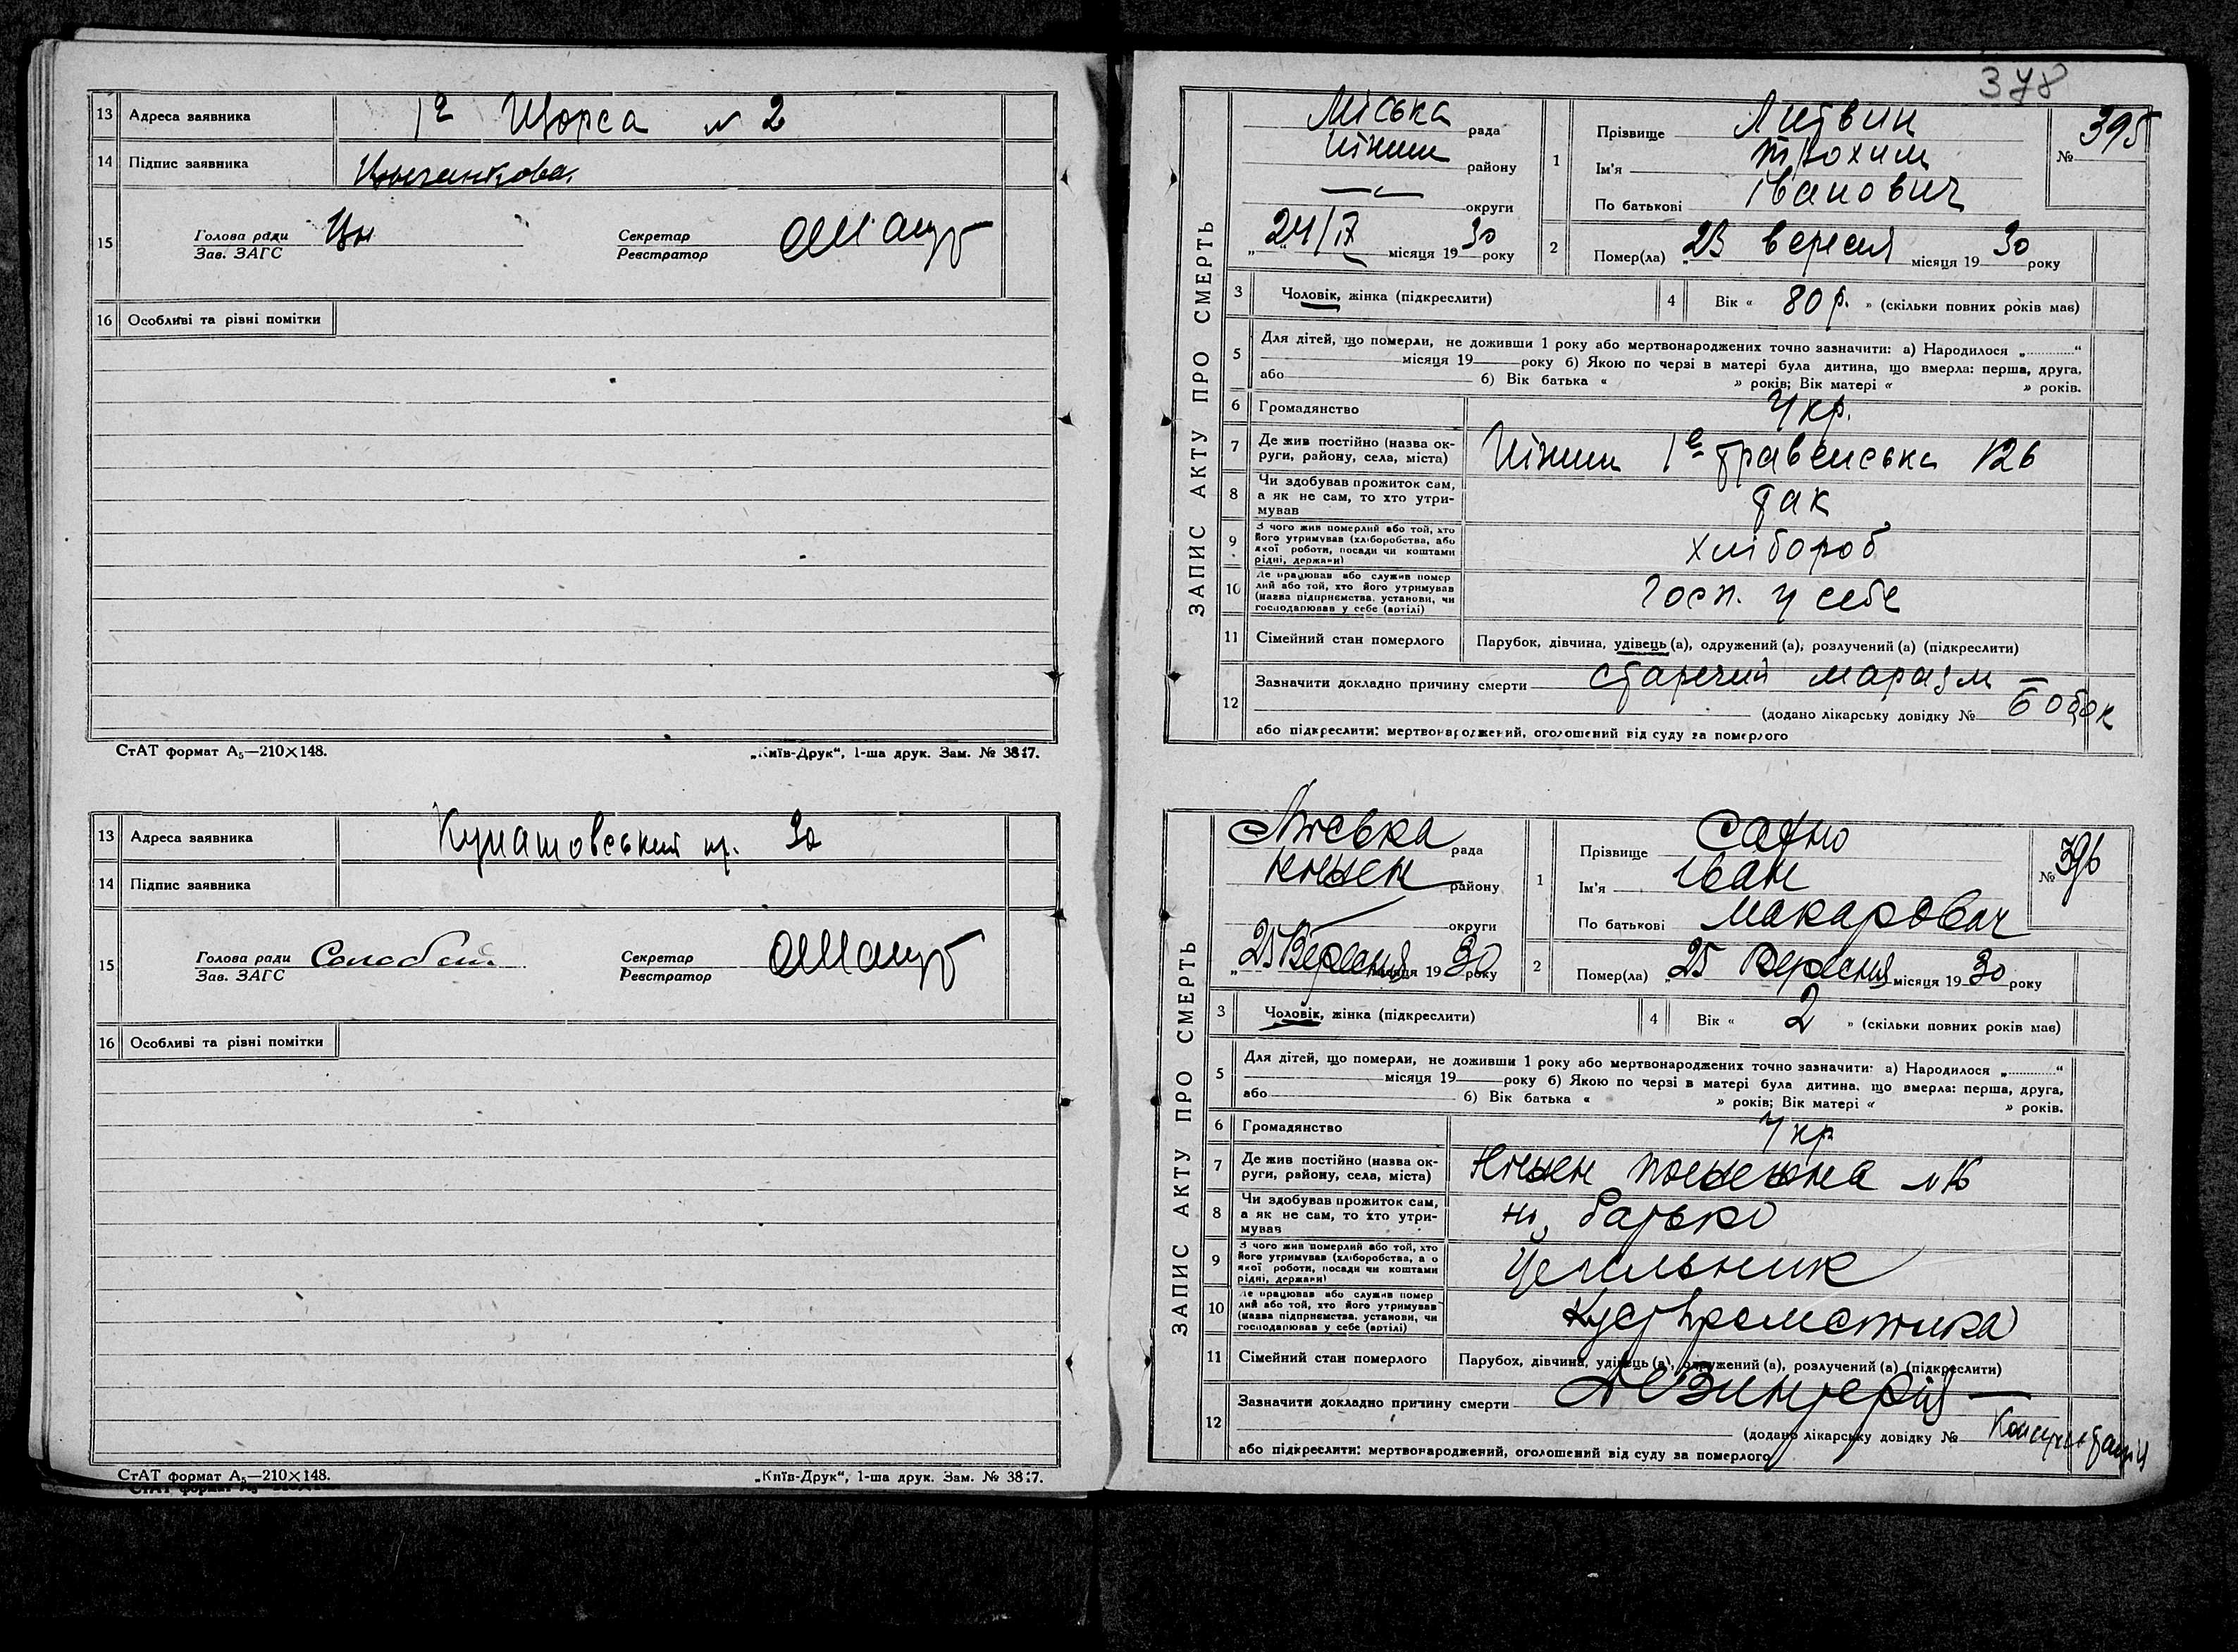 13 Адреса заявника 1а Щорса № 2
14 Підпис заявника
15 Голова ради
Зав. ЗАГС
Секретар
Реєстратор
16 Особливі та різні помітки
СтАТ формат А5—210×148.
„Київ-Друк“, 1-ша друк. Зам. № 3817.
13 Адреса заявника
14 Підпис заявника
15 Голова ради
Зав. ЗАГС
Секретар
Реєстратор
16 Особливі та різні помітки
СтАТ формат А5—210×148.
„Київ-Друк“, 1-ша друк. Зам. № 3817.
378
ЗАПИС АКТУ ПРО СМЕРТЬ
Міська рада
Ніжин району
округи
„24/IX“ місяця 1930 року
1 Прізвище Литвин
Ім'я Трохим
По батькові Іванович
№ 395
2 Помер(ла) „23 вересня місяця 1930 року
3 Чоловік, жінка (підкреслити)
4 Вік « 80 р. » (скільки повних років має)
5 Для дітей, що померли, не доживши 1 року або мертвонароджених точно зазначити: а) Народилося „ “
місяця 19 року б) Якою по черзі в матері була дитина, що вмерла: перша, друга,
або б) Вік батька « » років; Вік матері « » років.
6 Громадянство Укр.
7 Де жив постійно (назва округи, району, села, міста) Ніжин 1е травенська 126
8 Чи здобував прожиток сам, а як не сам, то хто утримував так
9 З чого жив померлий або той, хто його утримував (хліборобства, або якої роботи, посади чи коштами рідні, держави) хлібороб
10 Де працював або служив померлий або той, хто його утримував (назва підприємства, установи, чи господарював у себе (артілі) Госп. у себе
11 Сімейний стан померлого Парубок, дівчина, удівець (а), одружений (а), розлучений (а) (підкреслити)
12 Зазначити докладно причину смерти старечий маразм —
(додано лікарську довідку №
або підкреслити: мертвонароджений, оголошений від суду за померлого
ЗАПИС АКТУ ПРО СМЕРТЬ
Міська рада
Ніжен району
округи
„25 Вересня місяця 1930 року
1 Прізвище
Ім'я Іван
По батькові Макарович
№ 396
2 Помер(ла) „25 Вересня місяця 1930 року
3 Чоловік, жінка (підкреслити)
4 Вік « 2 » (скільки повних років має)
5 Для дітей, що померли, не доживши 1 року або мертвонароджених точно зазначити: а) Народилося „ “
місяця 19 року б) Якою по черзі в матері була дитина, що вмерла: перша, друга,
або б) Вік батька « » років; Вік матері « » років.
6 Громадянство Укр
7 Де жив постійно (назва округи, району, села, міста) Ніжен
8 Чи здобував прожиток сам, а як не сам, то хто утримував ні, батько
9 З чого жив померлий або той, хто його утримував (хліборобства, або якої роботи, посади чи коштами рідні, держави) Цегельник
10 Де працював або служив померлий або той, хто його утримував (назва підприємства, установи, чи господарював у себе (артілі)
11 Сімейний стан померлого Парубок, дівчина, удівець (а), одружений (а), розлучений (а) (підкреслити)
12 Зазначити докладно причину смерти Дезинтерія —
(додано лікарську довідку №
або підкреслити: мертвонароджений, оголошений від суду за померлого